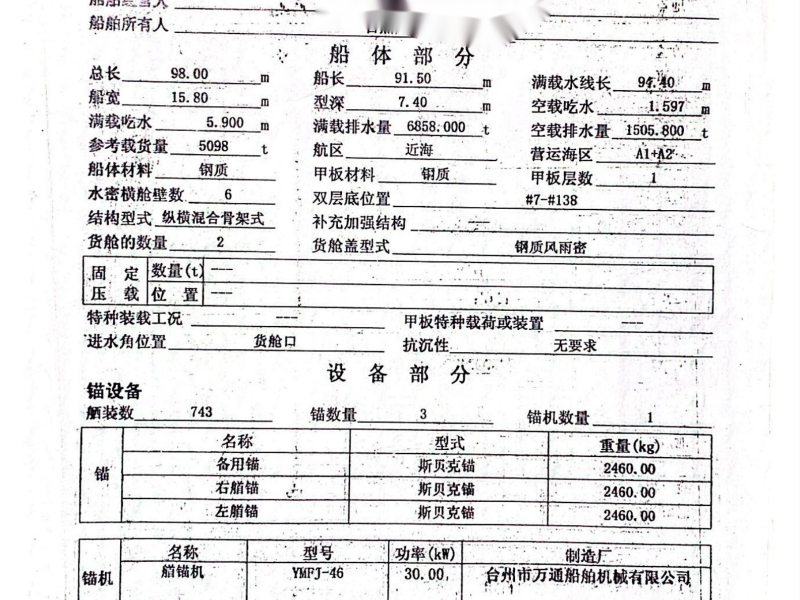 船舶所有人
船体部分
总长 98.00 m 船长 91.50 m 满载水线长 94.40 m
船宽 15.80 m 型深 7.40 m 空载吃水 1.597 m
满载吃水 5.900 m 满载排水量 6858.000 t 空载排水量 1505.800 t
参考载货量 5098 t 航区 近海 营运海区 A1+A2
船体材料 钢质 甲板材料 钢质 甲板层数 1
水密横舱壁数 6 双层底位置 #7-#138
结构型式 纵横混合骨架式 补充加强结构 ---
货舱的数量 2 货舱盖型式 钢质风雨密
固定 数量(t) ---
压载 位置 ---
特种装载工况 --- 甲板特种载荷或装置 ---
进水角位置 货舱口 抗沉性 无要求
设备部分
锚设备
舾装数 743 锚数量 3 锚机数量 1
名称 型式 重量(kg)
锚 备用锚 斯贝克锚 2460.00
右艏锚 斯贝克锚 2460.00
左艏锚 斯贝克锚 2460.00
名称 型号 功率(kW) 制造厂
锚机 艏锚机 YMFJ-46 30.00 台州市万通船舶机械有限公司